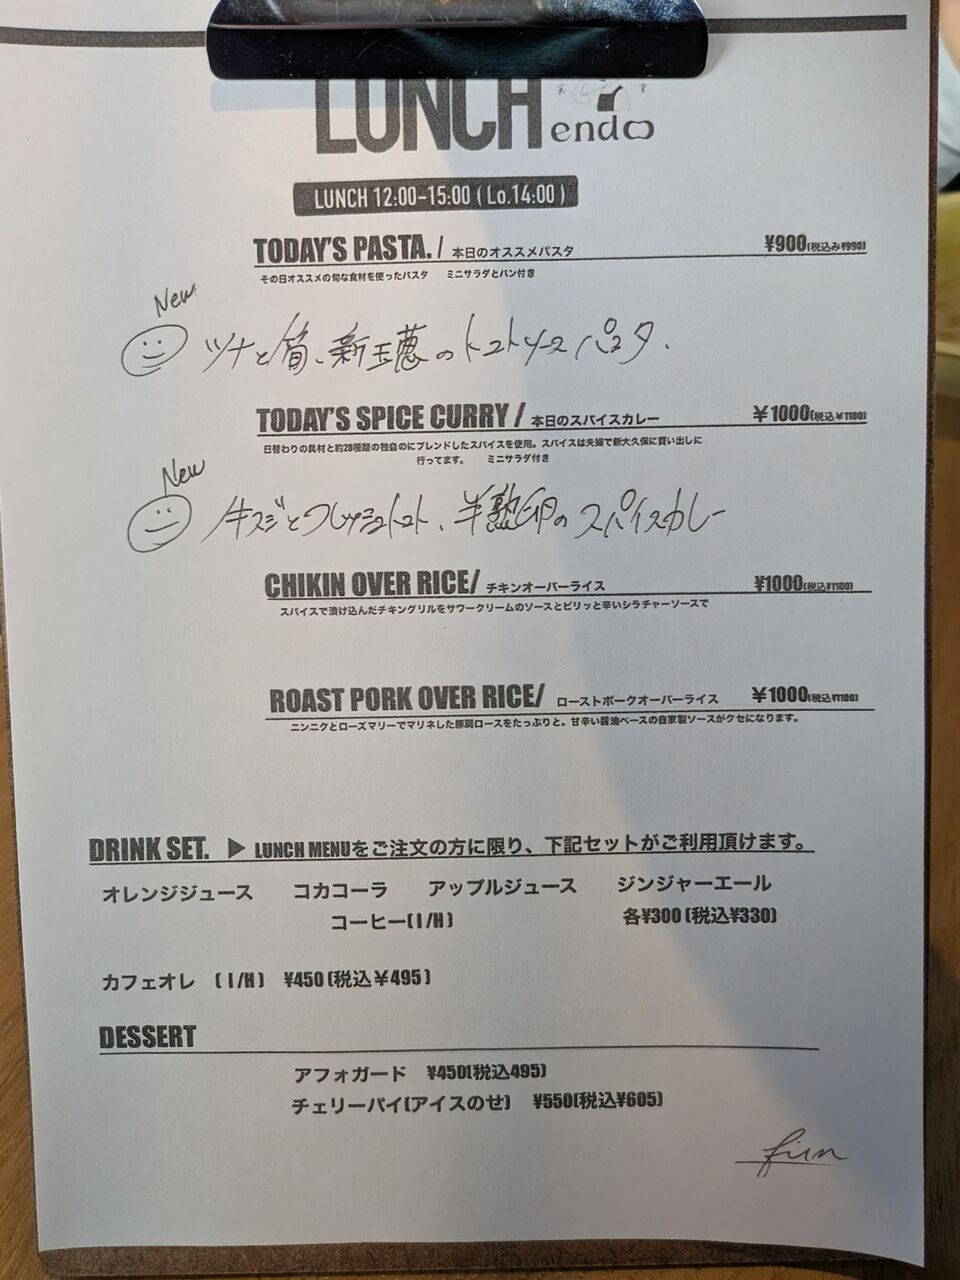 LUNCH
endo
LUNCH 12:00-15:00 ( Lo.14:00 )
TODAY'S PASTA. / 本日のオススメパスタ ¥900(税込み¥990)
その日オススメの旬な食材を使ったパスタ ミニサラダとパン付き
New
ツナと筍、新玉葱のトマトソースパスタ.
TODAY'S SPICE CURRY / 本日のスパイスカレー ¥1000(税込¥1100)
日替わりの具材と約20種類の独自のにブレンドしたスパイスを使用。スパイスは夫婦で新大久保に買い出しに
行ってます。 ミニサラダ付き
New
牛スジとフレッシュトマト、半熟卵のスパイスカレー
CHIKIN OVER RICE/ チキンオーバーライス ¥1000(税込¥1100)
スパイスで漬け込んだチキングリルをサワークリームのソースとピリッと辛いシラチャーソースで
ROAST PORK OVER RICE/ ローストポークオーバーライス ¥1000(税込¥1100)
ニンニクとローズマリーでマリネした豚肩ロースをたっぷりと。甘辛い醤油ベースの自家製ソースがクセになります。
DRINK SET. ▶ LUNCH MENUをご注文の方に限り、下記セットがご利用頂けます。
オレンジジュース コカコーラ アップルジュース ジンジャーエール
コーヒー( I / H ) 各¥300 (税込¥330)
カフェオレ ( I / H ) ¥450 (税込¥495 )
DESSERT
アフォガード ¥450(税込495)
チェリーパイ(アイスのせ) ¥550(税込¥605)